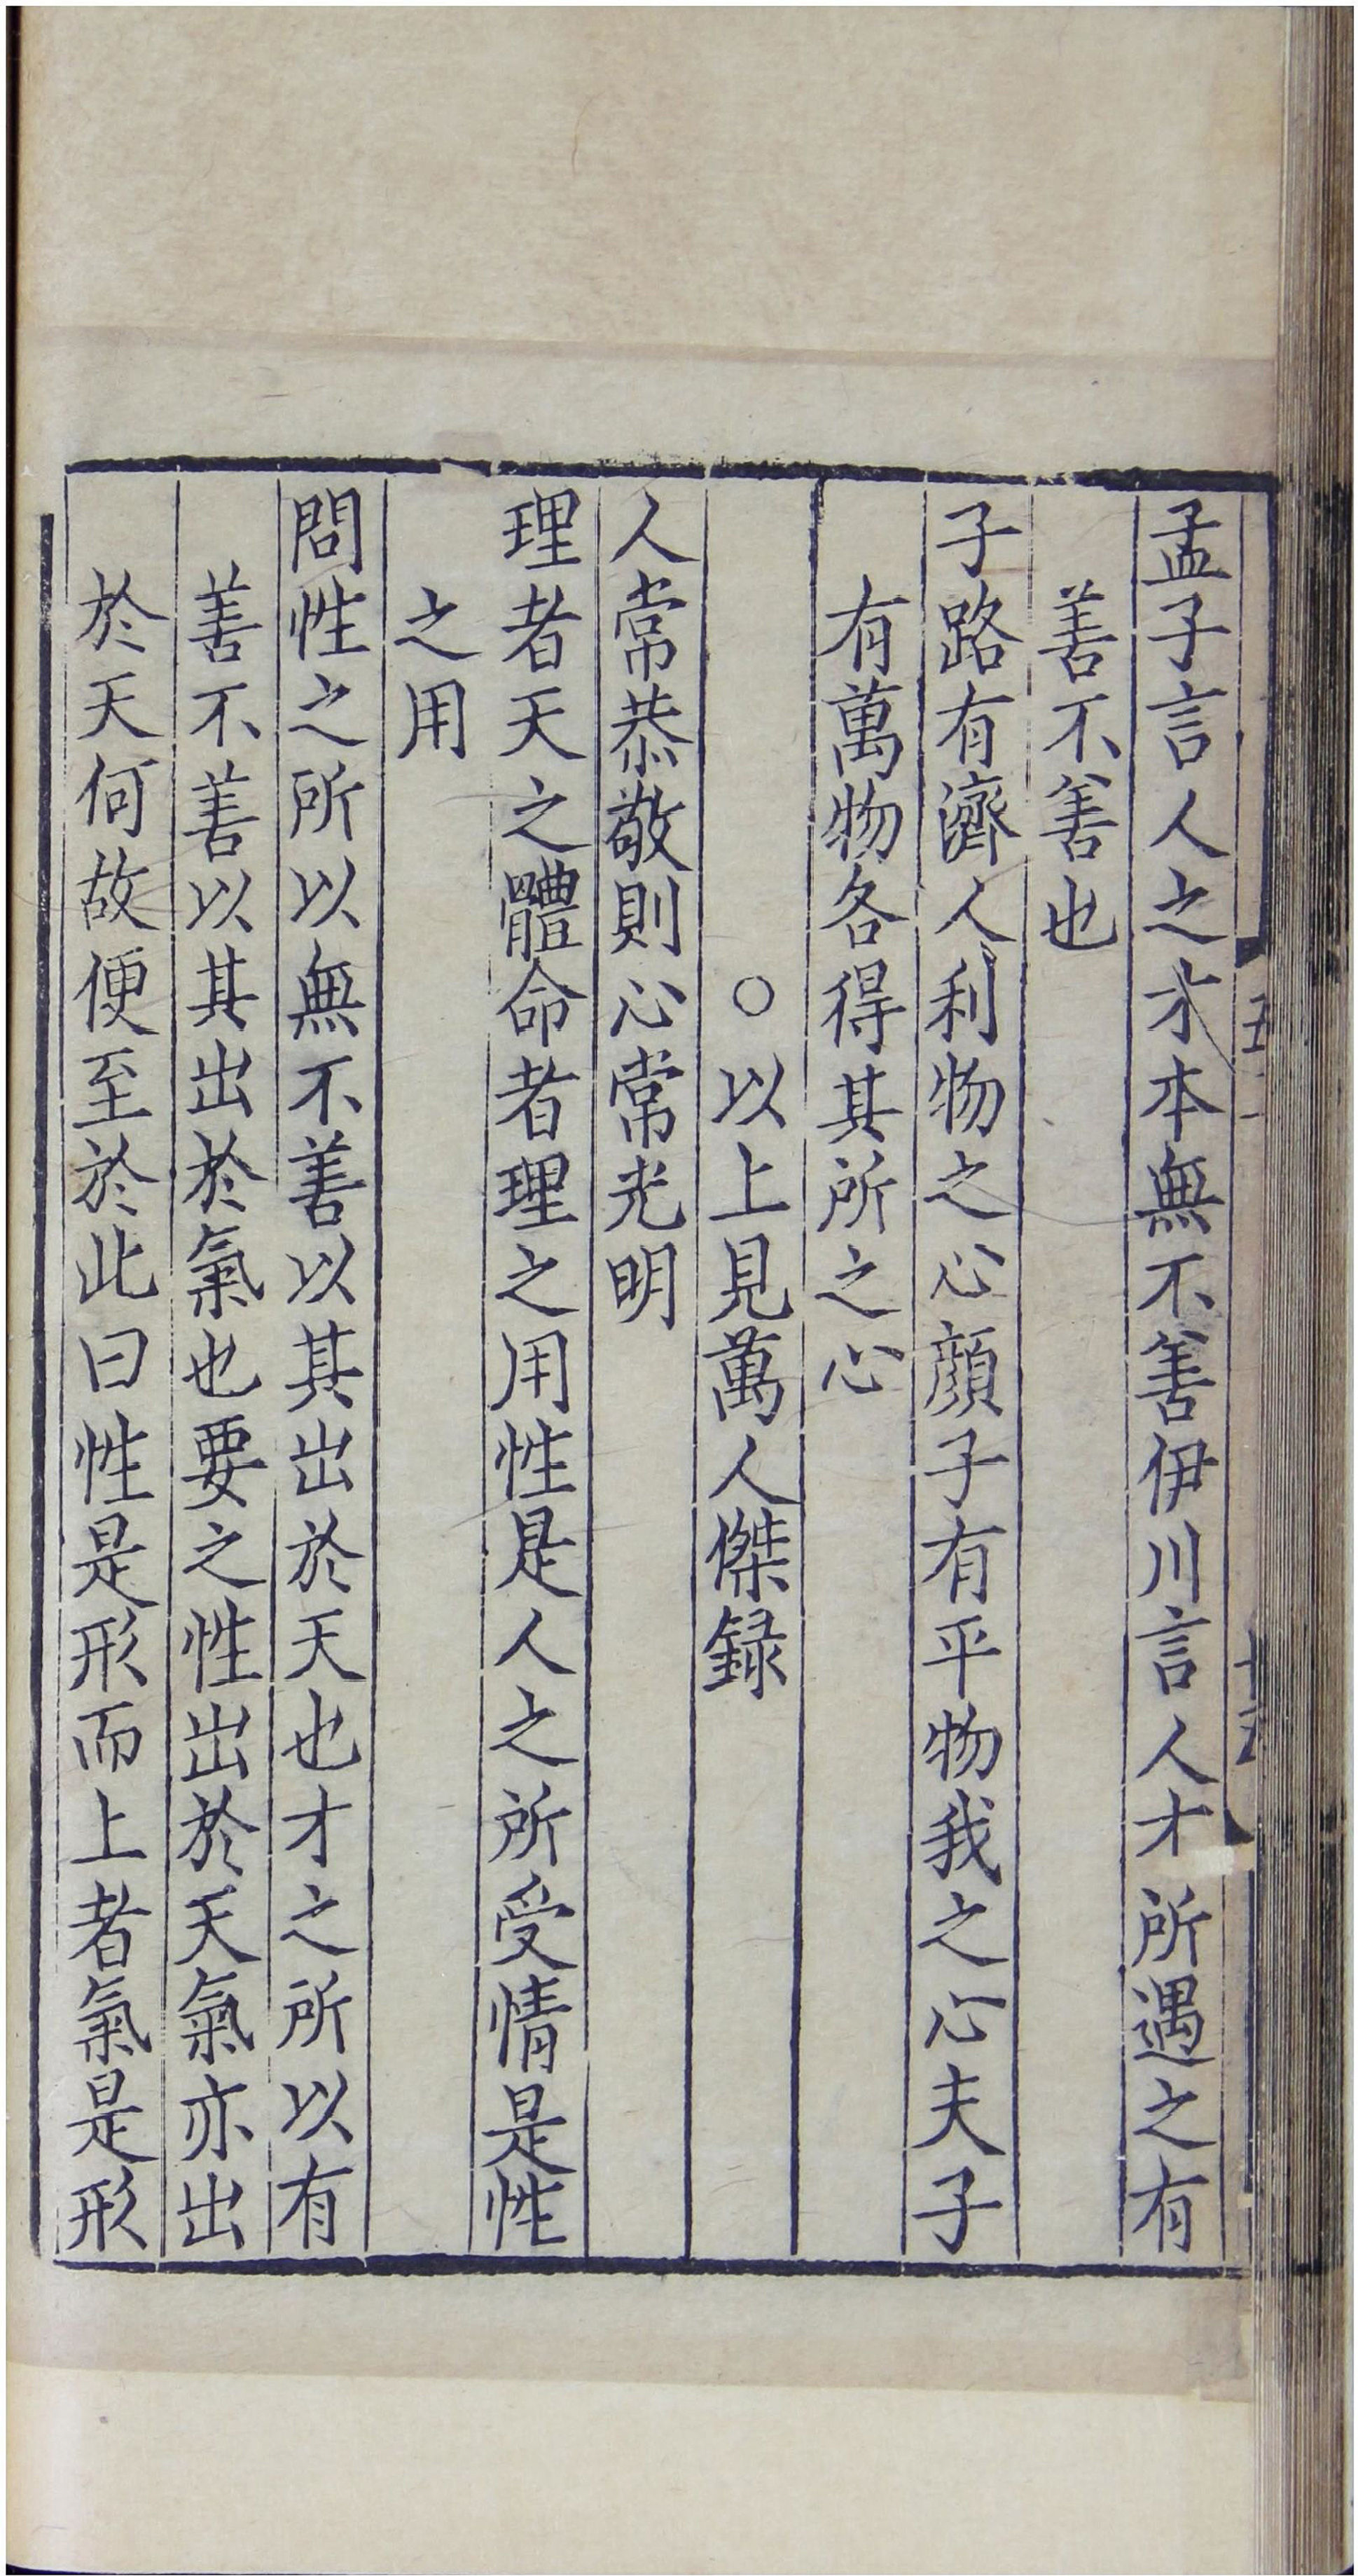 孟子言人之才本無不善伊川言人才所遇之有
善不善也
子路有濟人利物之心顔子有平物我之心夫子
有萬物各得其所之心
○以上見萬人傑録
人常恭敬則心常光明
理者天之體命者理之用性是人之所受情是性
之用
問性之所以無不善以其出於天也才之所以有
善不善以其出於氣也要之性出於天氣亦出
於天何故便至於此曰性是形而上者氣是形